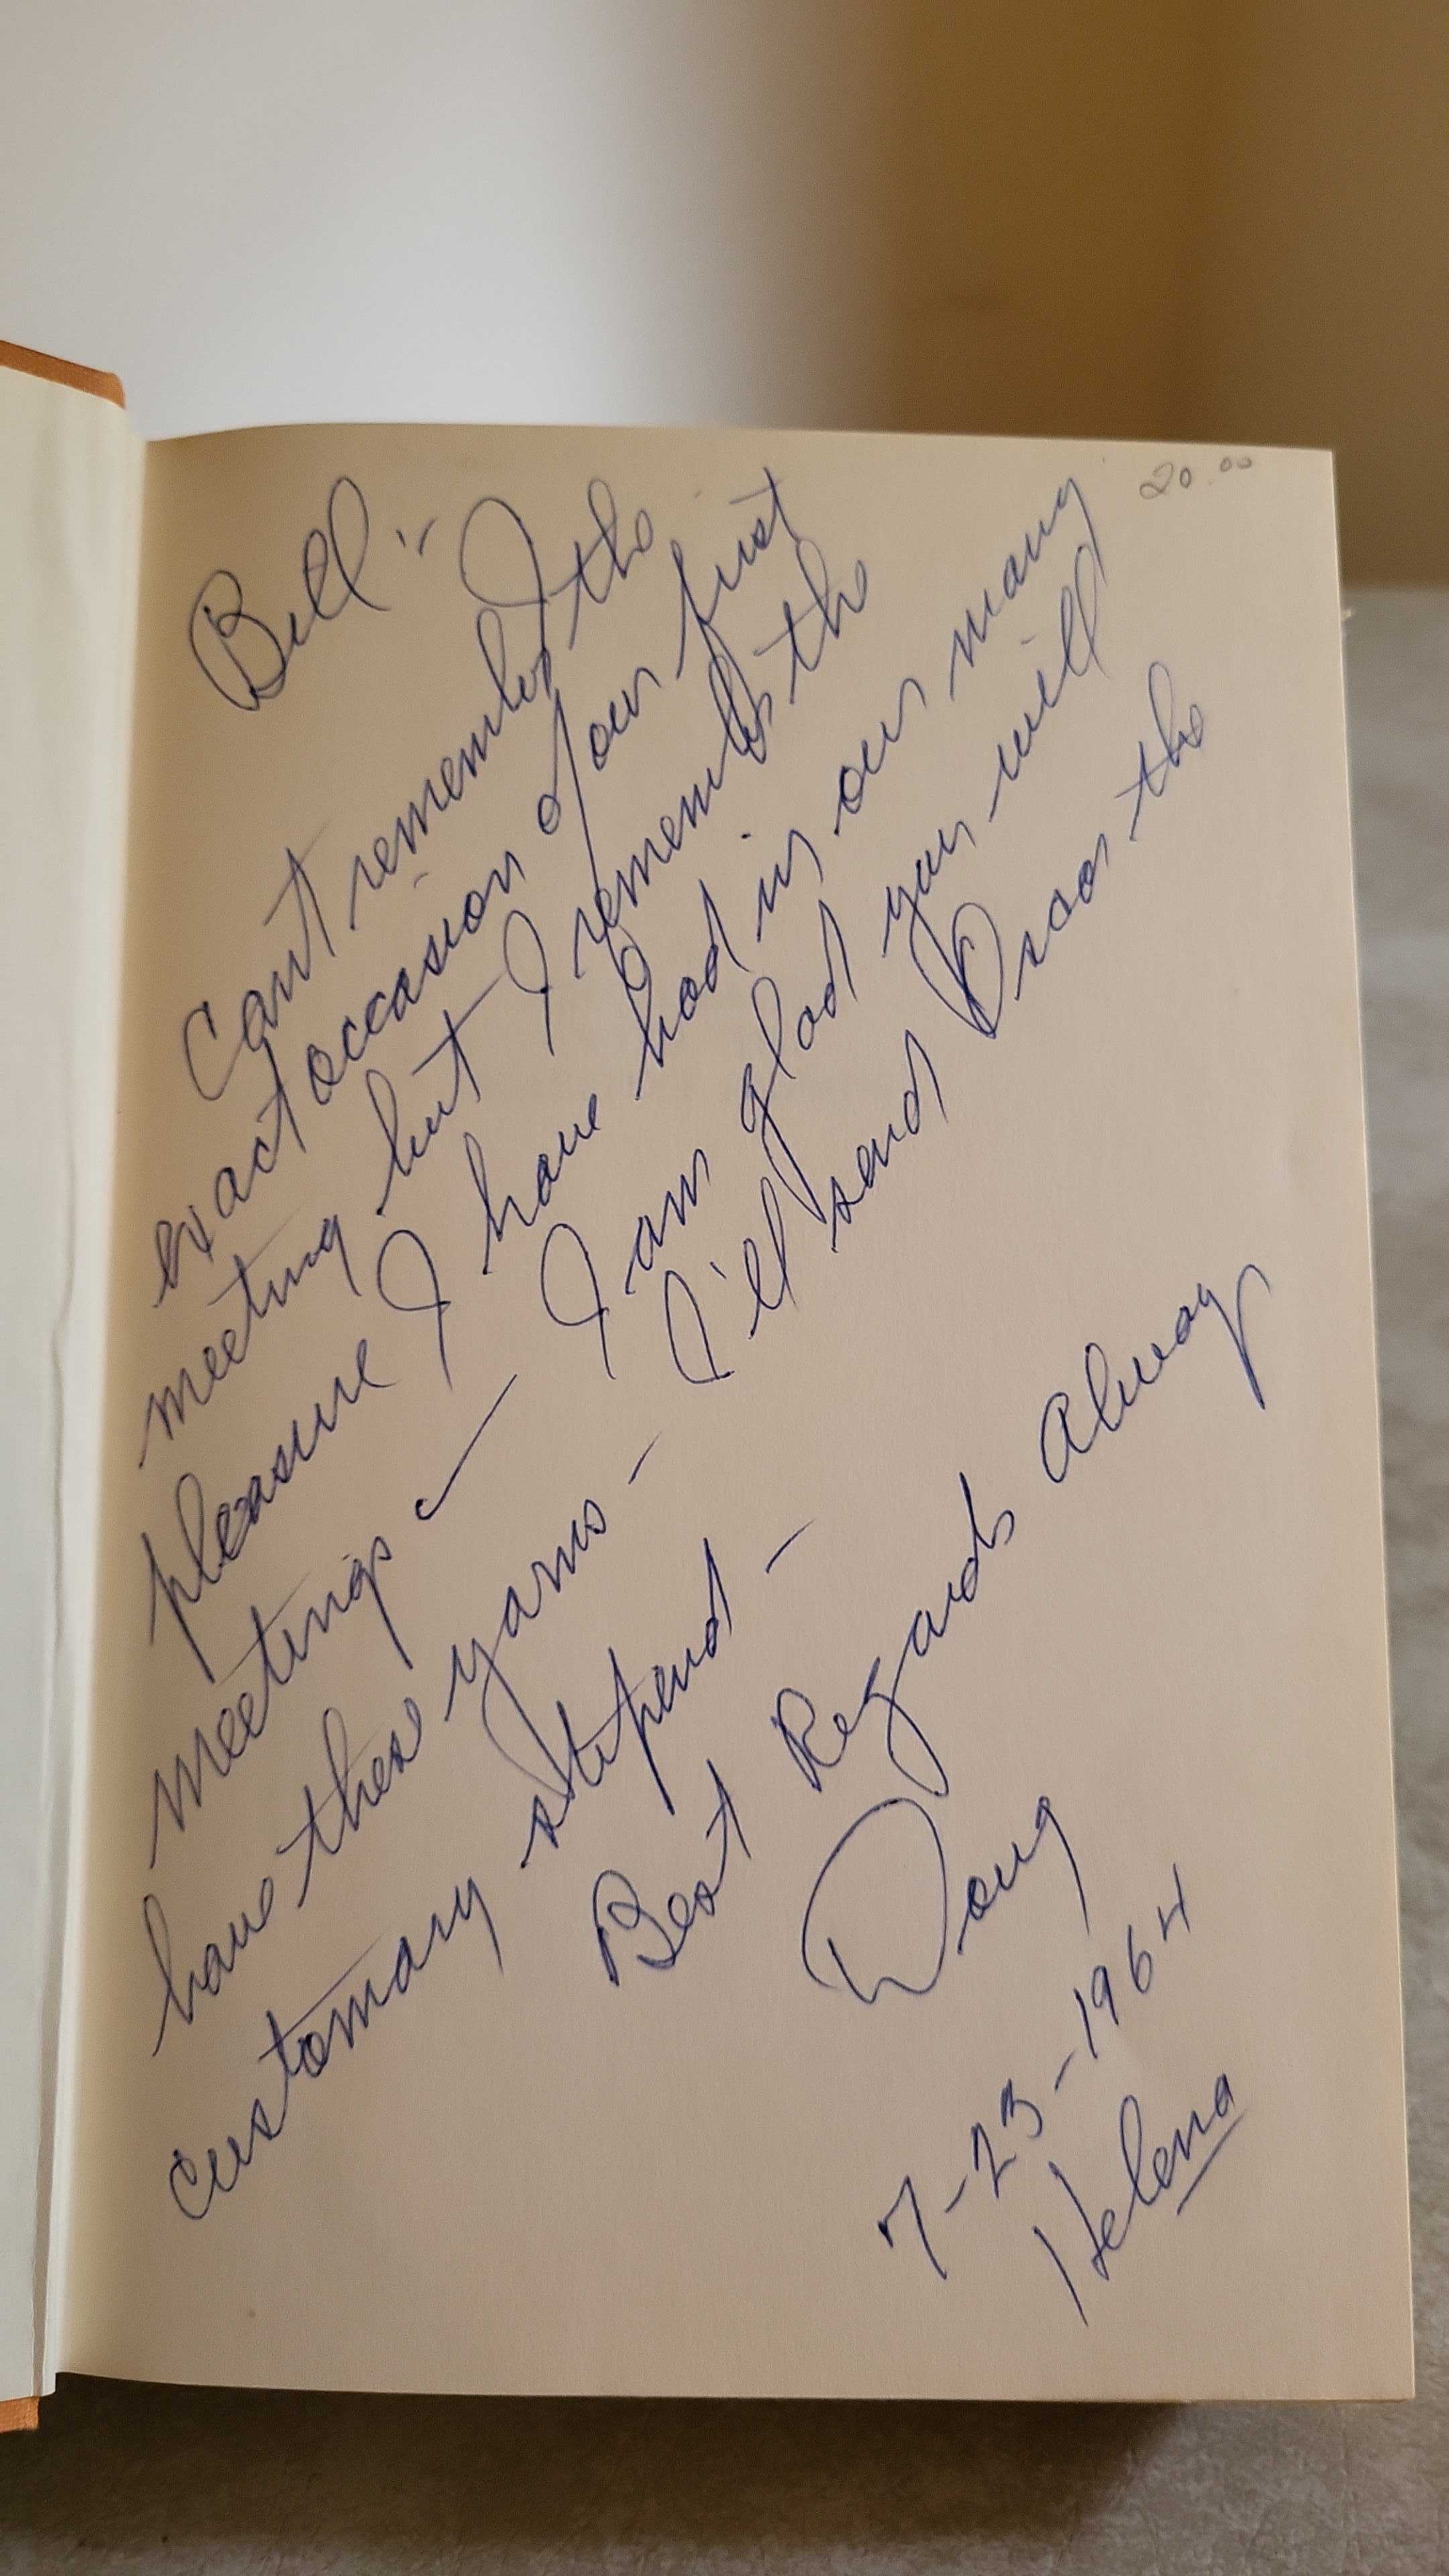 20.00
Bill :- I
can't remember the
exact occasion of our first
meeting but I remember the
pleasure I have had in our many
meetings — I am glad you will
have these yarns - I'll send Dsoar the
customary stipend -
Best Regards Always
Doug
7-23-1964
Helena